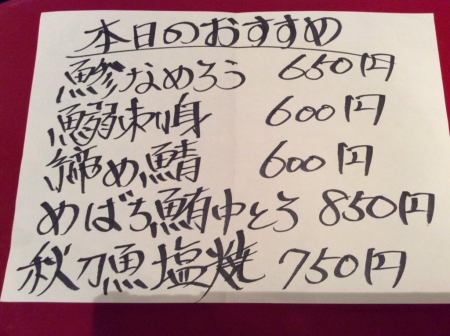 本日のおすすめ
鯵なめろう 650円
鰯刺り身 600円
締め鯖 600円
めばち鮪中とろ 850円
秋刀魚塩焼 750円